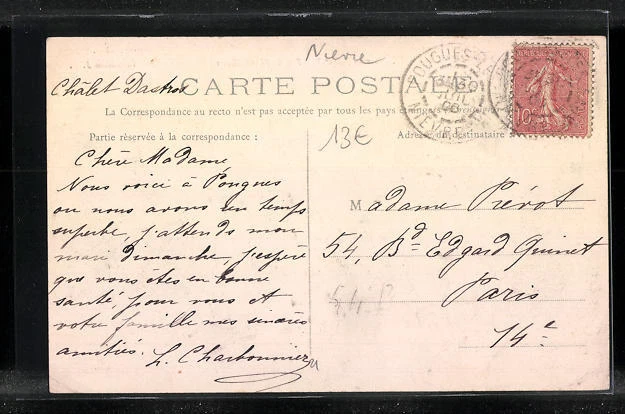 Nièvre
Châlet
CARTE POSTALE
La Correspondance au recto n'est pas acceptée par tous les pays étrangers
POUGUES
NIEVRE
10
13€
Partie réservée à la correspondance :
Adresse du destinataire
Chère Madame
Nous voici à Pougues
ou nous avons un temps
superbe, j'attends mon
mari dimanche, j'espère
que vous êtes en bonne
santé, pour vous et
votre famille mes sincères
amitiés. L. Charbonnier
Madame Prévot
54, Bd Edgard Quinet
Paris
14e